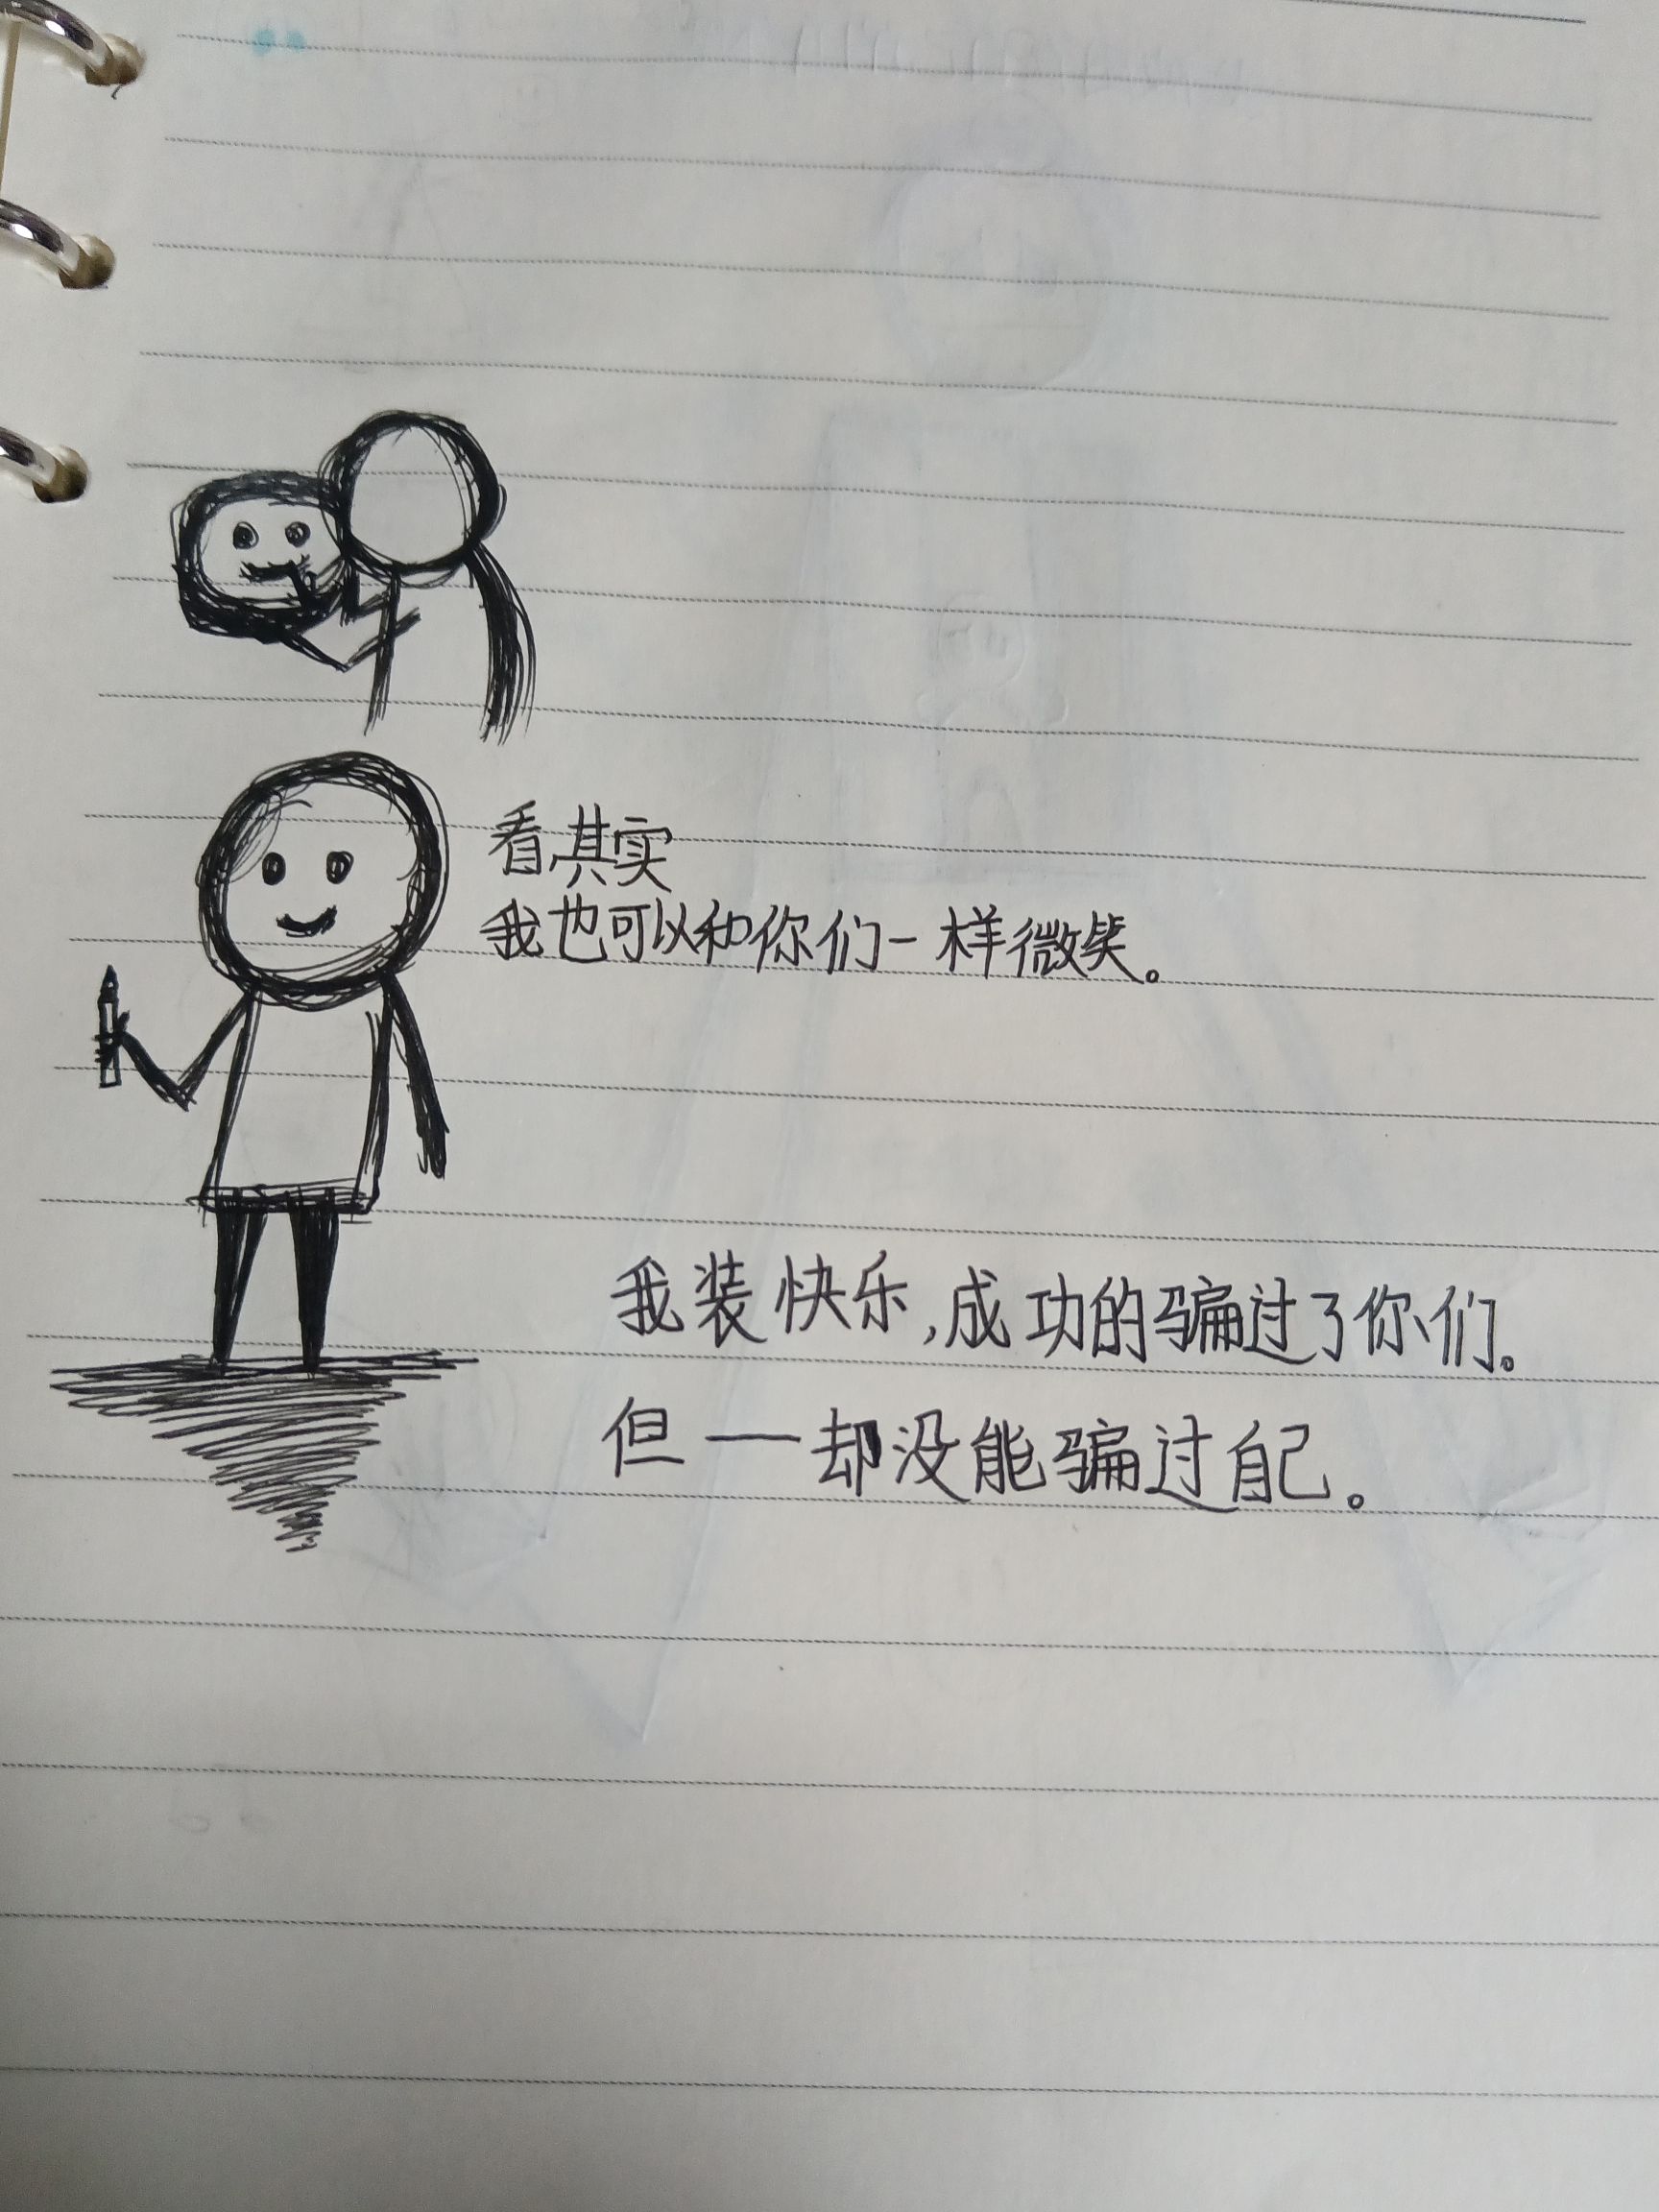 看,其实
我也可以和你们一样微笑。
我装快乐,成功的骗过了你们。
但一却没能骗过自己。